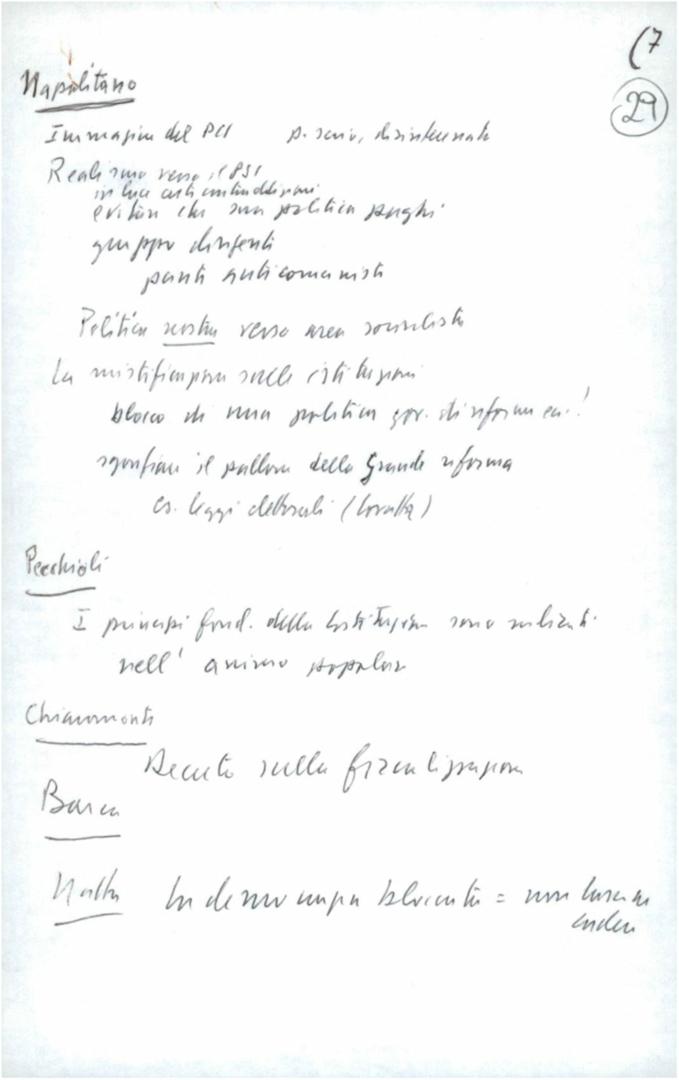 (7
29
Napolitano
Immagine del PCI p. serio, disinteressato
Realismo verso il PSI
in luce certe contraddizioni
evitare che sua politica paghi
gruppo dirigenti
punti anticomunisti
Politica nostra verso area socialista
La mistificazione sulle istituzioni
blocco di una politica gov. di riforme
sgonfiare il pallone della Grande riforma
es. leggi elettorali
Pecchioli
I principi fond. della Costituzione sono radicati
nell' animo popolare
Chiaromonte
Decreto sulla fiscalizzazione
Barca
Natta La democrazia bloccata = non lasciar